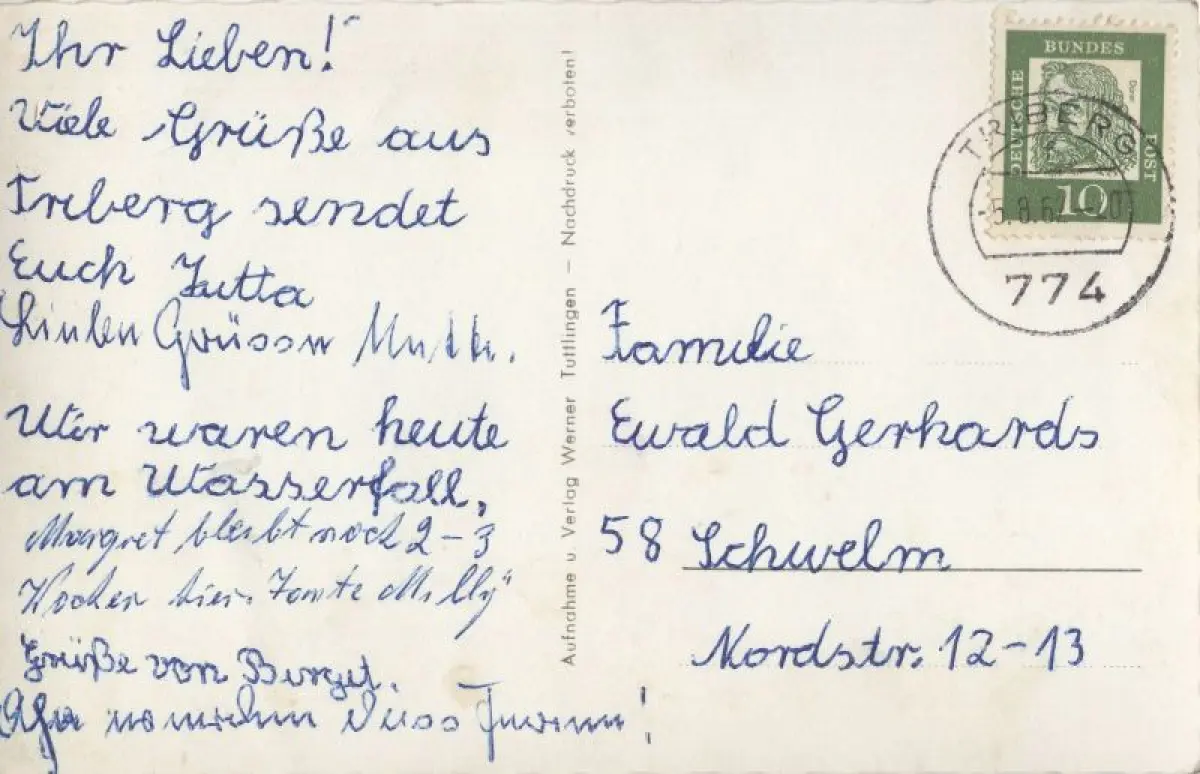 Ihr Lieben!
Viele Grüße aus
Triberg sendet
Euch Jutta
Grüssn
Wir waren heute
am Wasserfall.
Margret bleibt noch 2-3
Wochen hier. Tante Milly
Grüße von Birgit.
Aufnahme u. Verlag Werner Tuttlingen – Nachdruck verboten!
DEUTSCHE
BUNDES
POST
10
TRIBERG
774
Familie
Ewald Gerhards
58 Schwelm
Nordstr. 12-13